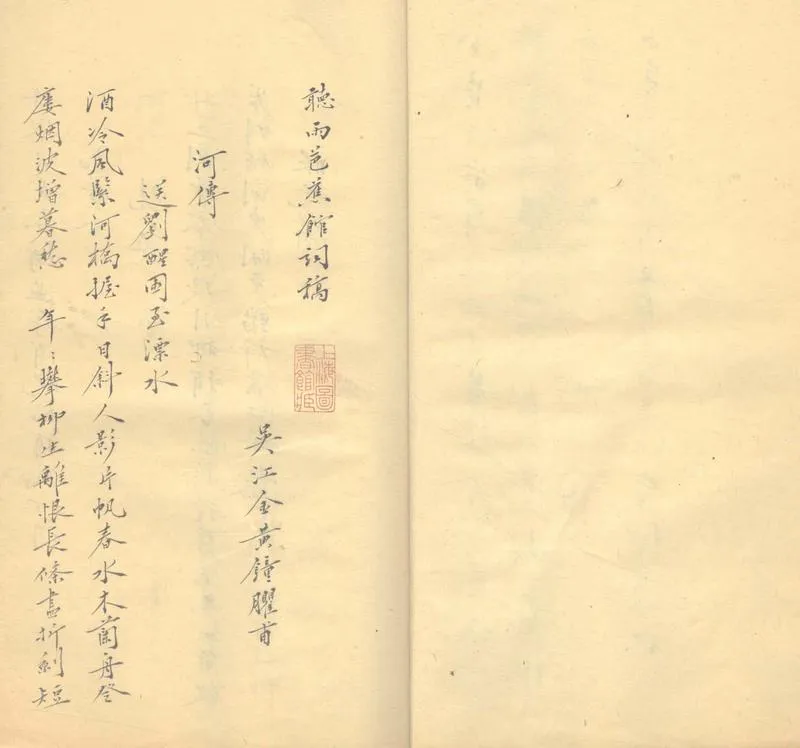 聽雨芭蕉館詞稿
上海圖書館藏
吳江金黃鐘臞首
河傳
送劉醒園至漂水
酒冷風緊河橋握手日斜人影片帆春水木蘭舟登
慶烟波增暮愁 年〻攀柳生離恨長條盡折剩短